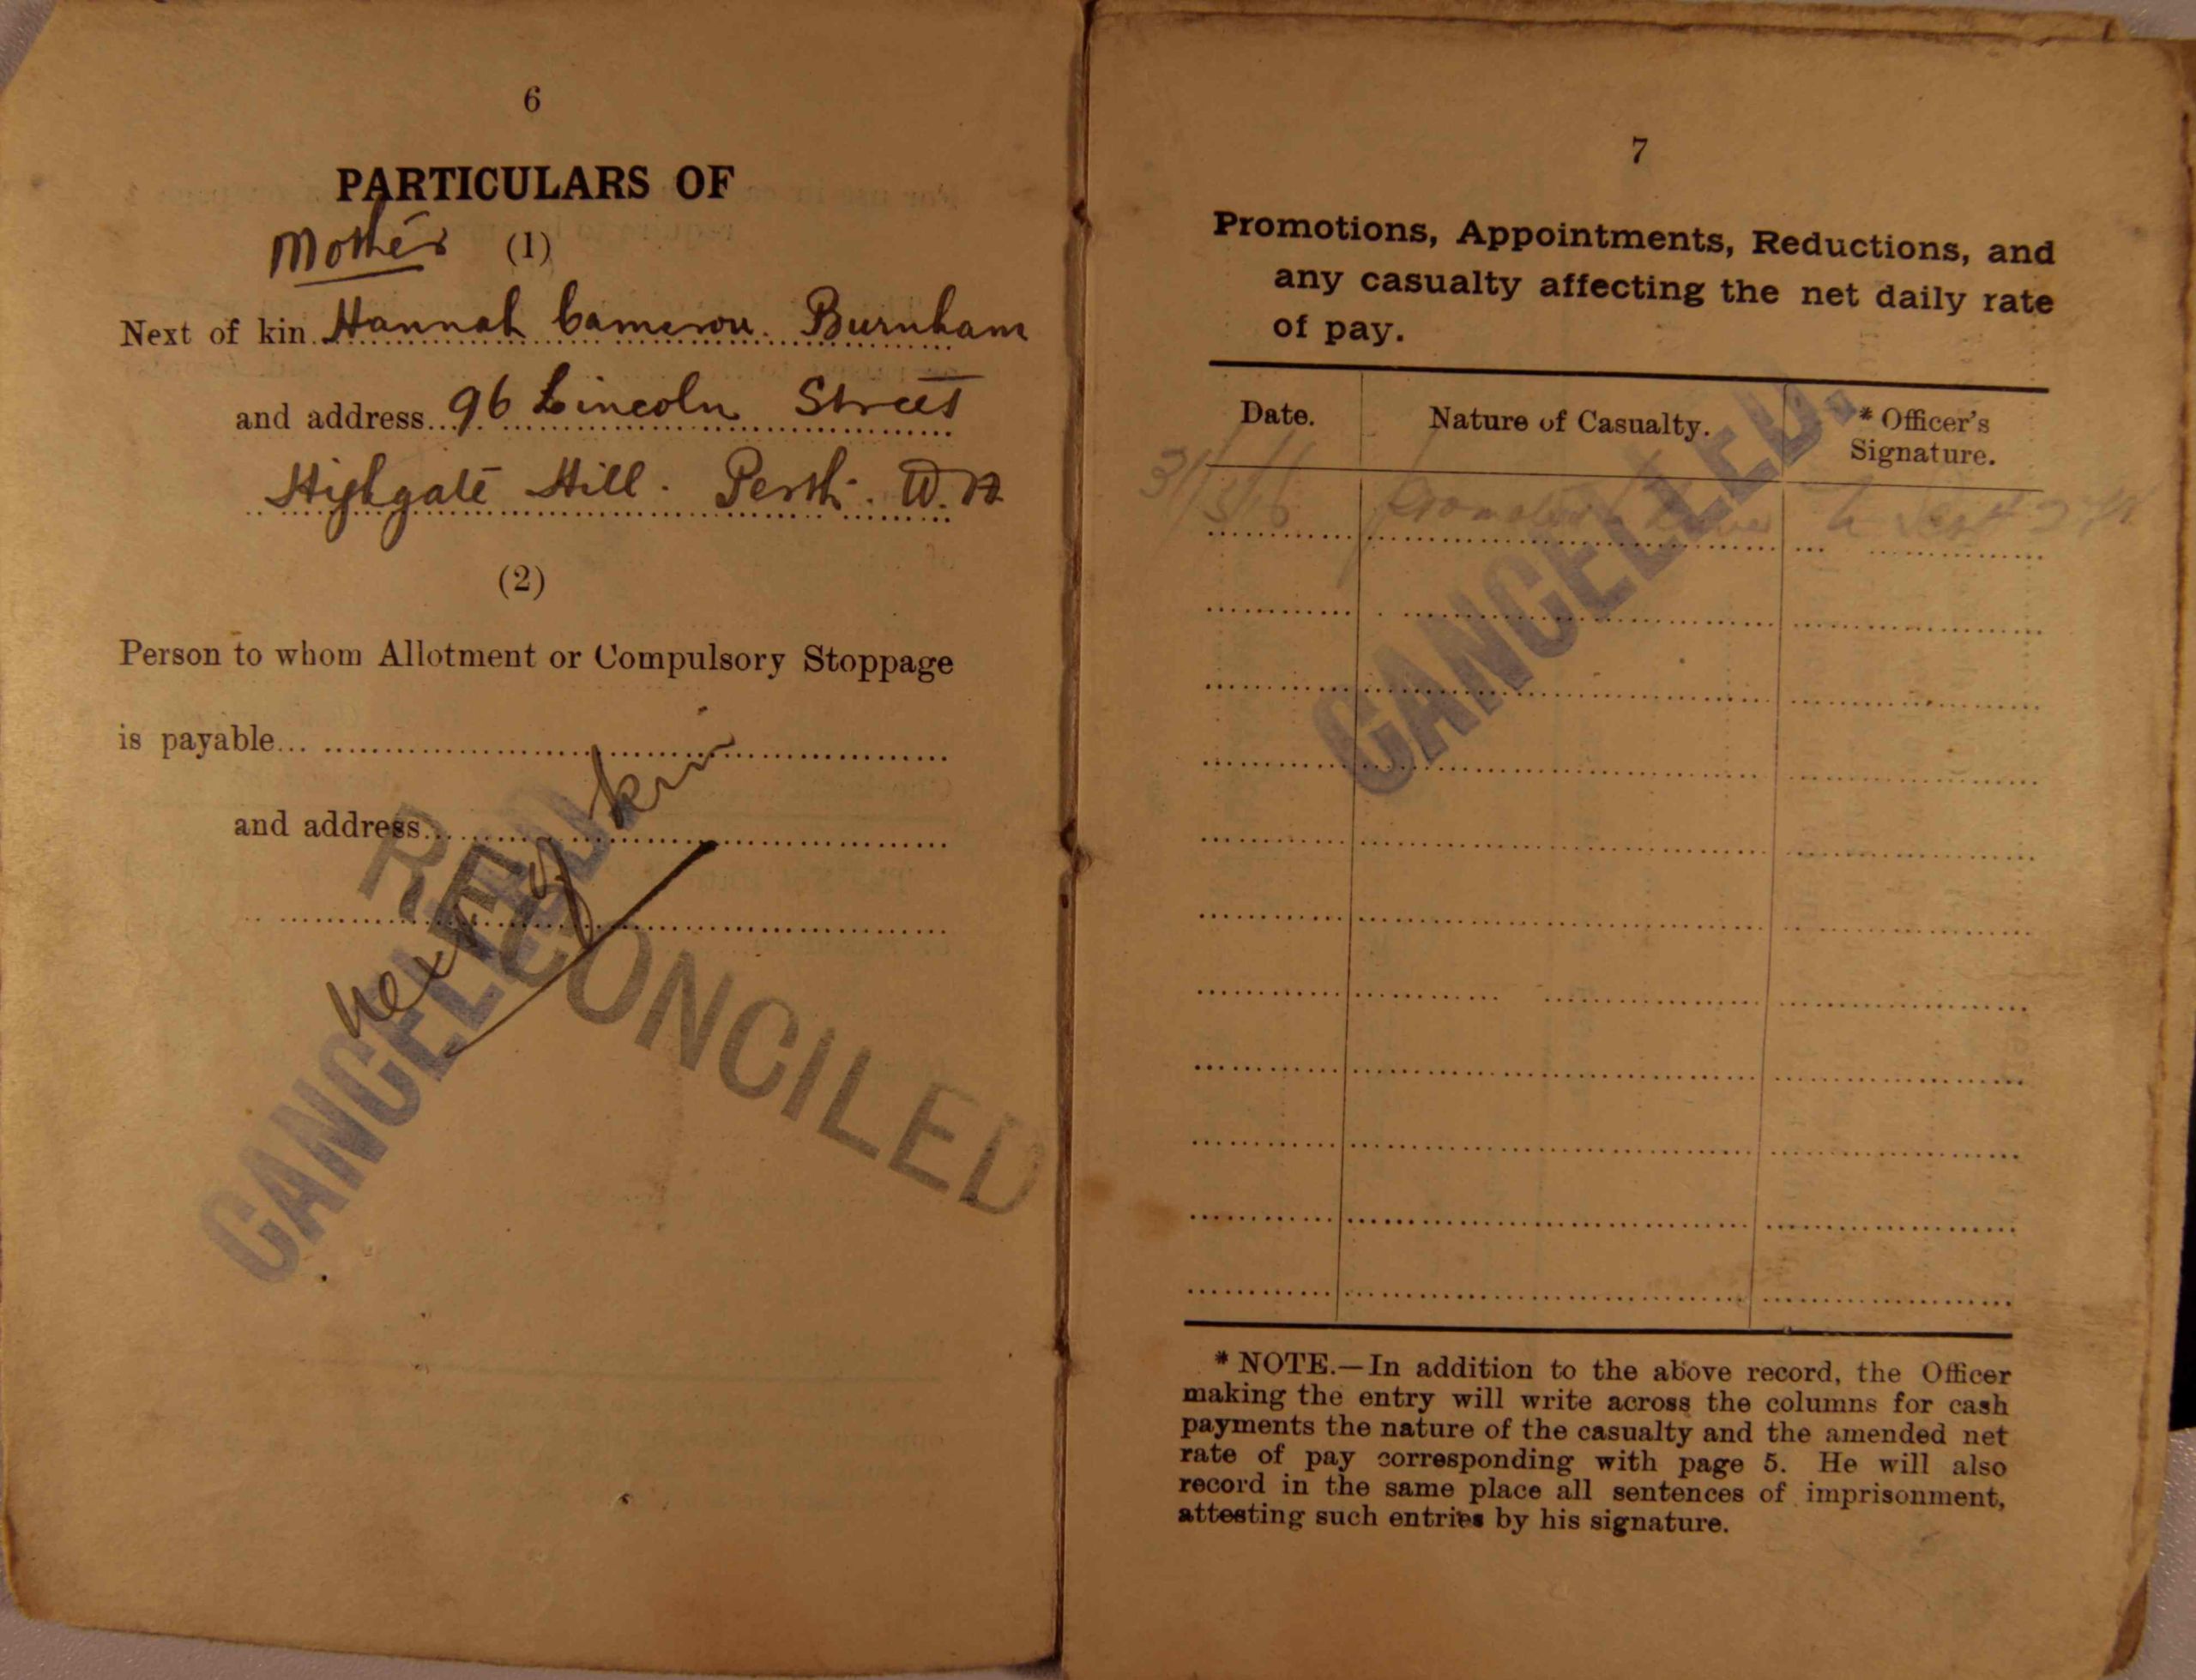 6
PARTICULARS OF
Mother (1)
Next of kin Hannah Cameron. Burnham
and address 96 Lincoln Street
Highgate Hill. Perth. W.A
(2)
Person to whom Allotment or Compulsory Stoppage
is payable
and address
next of kin
CANCELLED
RECONCILED
7
Promotions, Appointments, Reductions, and
any casualty affecting the net daily rate
of pay.
Date. Nature of Casualty. * Officer's
Signature.
Promoted
CANCELLED.
* NOTE.—In addition to the above record, the Officer
making the entry will write across the columns for cash
payments the nature of the casualty and the amended net
rate of pay corresponding with page 5. He will also
record in the same place all sentences of imprisonment,
attesting such entries by his signature.